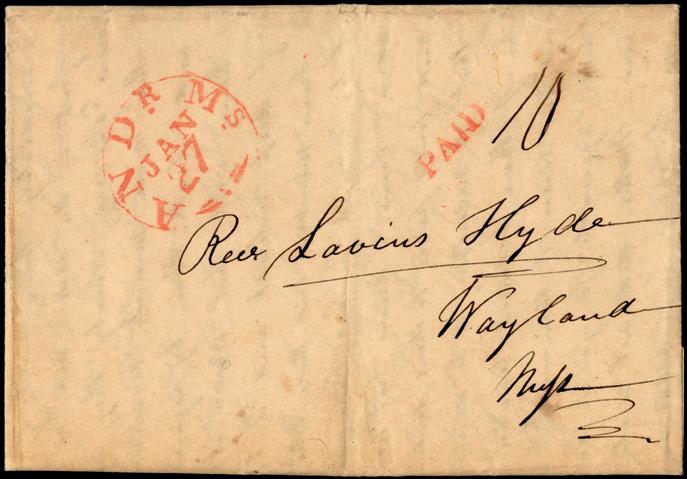 ANDR. MS.
JAN
27
PAID
10
Rev Lavius Hyde
Wayland